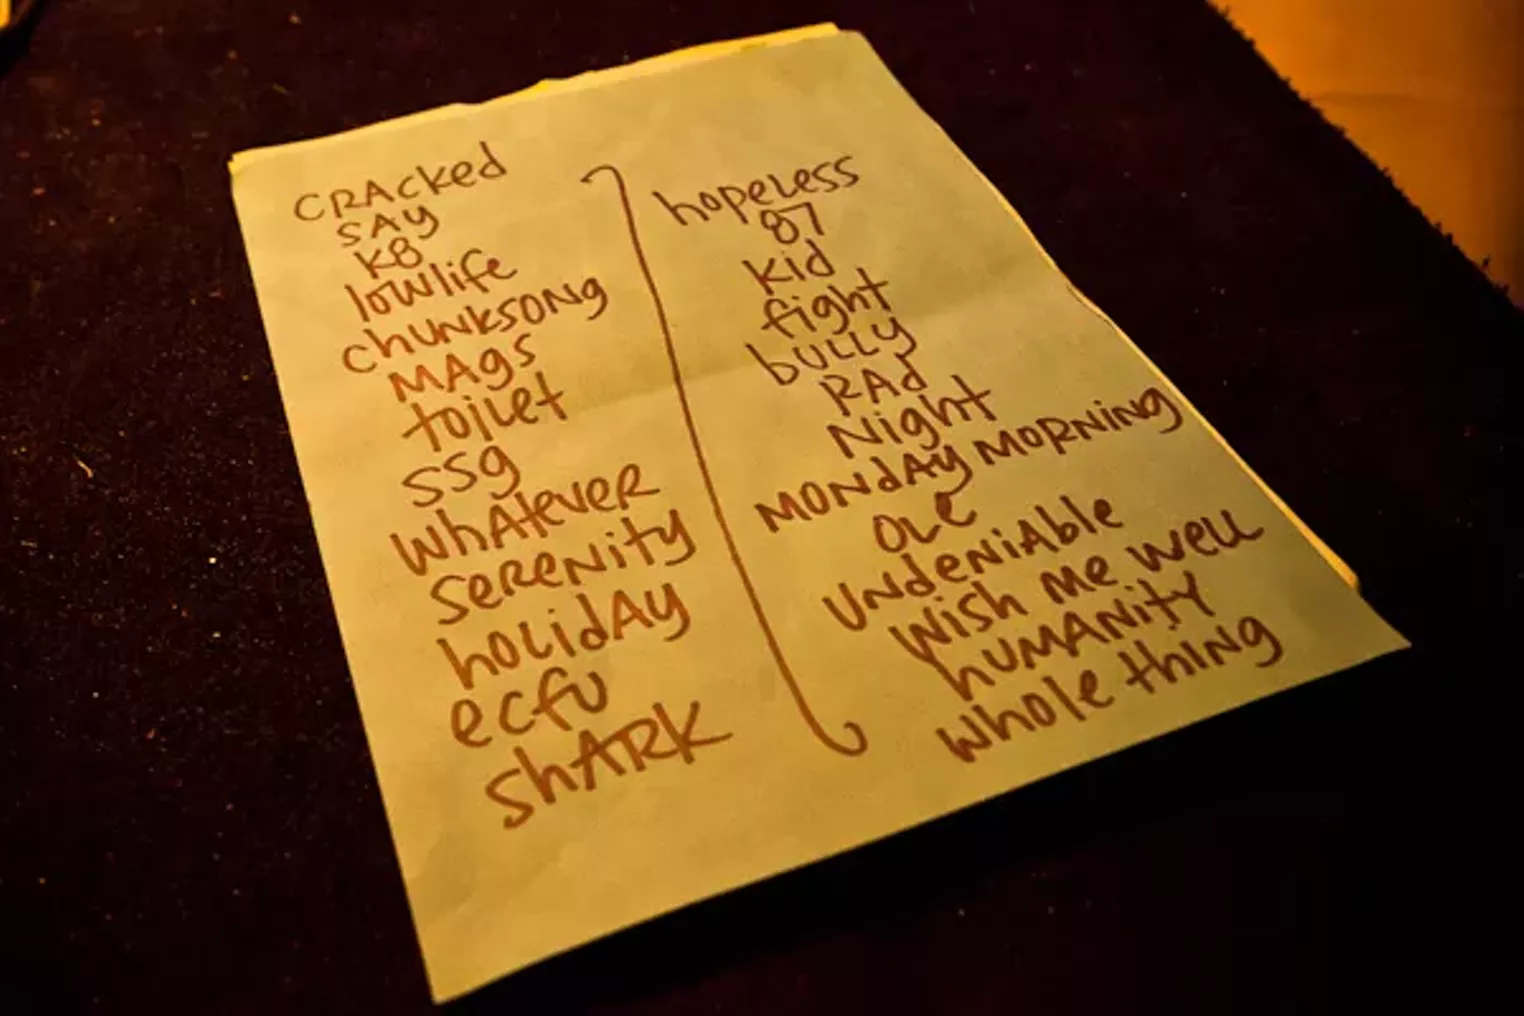 CRACKed
SAY
K8
lowlife
chUNKSONg
MAgS
toilet
SSg
WhAtever
SeReNity
holidAy
ecfu
ShARK
hopeless
87
kid
fight
bully
RAd
Night
MONdAy MORNiNg
OLe
UNdeNiAble
Wish Me Well
hUMANity
Whole thiNg